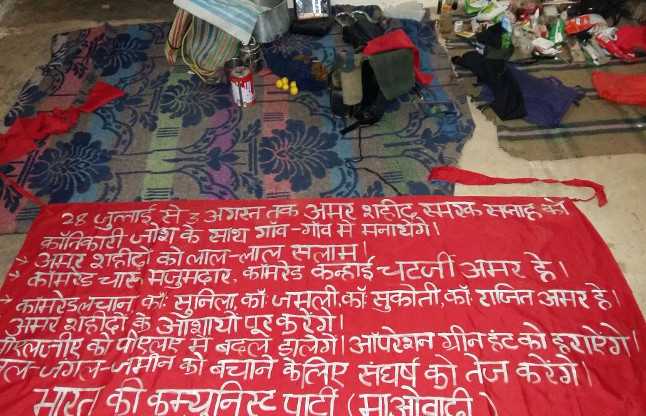 28 जुलाई से 3 अगस्त तक अमर शहीद स्मरक सप्ताह को
क्रॉतिकारी जोश के साथ गाँव-गाँव में मनायेंगे।
अमर शहीदों को लाल-लाल सलाम।
कॉमरेड चारू मजुमदार, कॉमरेड कन्हाई चटर्जी अमर हे।
कॉमरेड लचान, कॉ. सुनिला, कॉ जमली, कॉ सुकोती, कॉ. राजित अमर हे।
अमर शहीदों के आशायों पूर करेंगे।
पीएलजीए को पीएलए में बदल डालेंगे। ऑपरेशन ग्रीन हंट को हराऐंगे।
जल-जंगल-जमीन को बचाने के लिए संघर्ष को तेज करेंगे।
भारत की कम्युनिस्ट पार्टी (माओवादी)